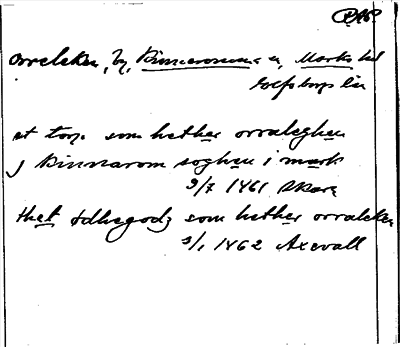 Orreleken, by, Kinnarumma sn, Marks hd
Elfsborgs län
et torp som hether orraleghen
j Kinnarom soghen i mark
9/7 1461 Skara
thet ödhegodz som hether orraleken
3/1 1462 Axevall